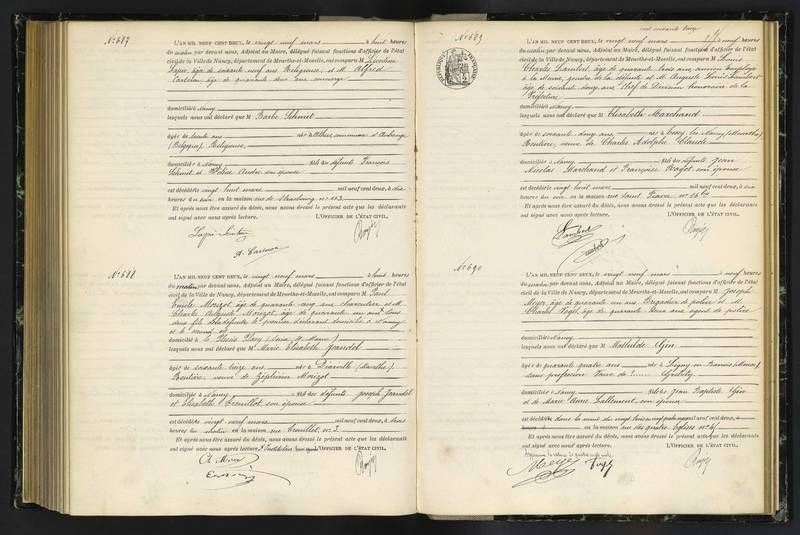 N° 687
L'AN MIL NEUF CENT DEUX, le vingt neuf mars à huit heures
du matin par devant nous, Adjoint au Maire, délégué faisant fonctions d'officier de l'état
civil de la Ville de Nancy, département de Meurthe-et-Moselle, ont comparu M Léontine
âgée de soixante neuf ans Religieuse, et M Alfred
âgé de quarante deux ans
domiciliés à Nancy
lesquels nous ont déclaré que M Barbe Schmit
âgée de trente ans née à Athus commune d'Aubange
(Belgique) Religieuse,
domiciliée à Nancy fille des défunts François
Schmit et André son épouse
est décédée vingt huit mars mil neuf cent deux, à dix
heures du soir en la maison rue de Strasbourg n° 113
Et après nous être assuré du décès, nous avons dressé le présent acte que les déclarants
ont signé avec nous après lecture. L'OFFICIER DE L'ÉTAT CIVIL,
N° 688
L'AN MIL NEUF CENT DEUX, le vingt neuf mars à huit heures
du matin par devant nous, Adjoint au Maire, délégué faisant fonctions d'officier de l'état
civil de la Ville de Nancy, département de Meurthe-et-Moselle, ont comparu M Paul
Emile Morizot âgé de quarante cinq ans charcutier et M
Charles Auguste Morizot, âgé de quarante un ans tous
deux fils de la défunte le premier déclarant domicilié à Nancy
et le second
domicilié à le Plessis Placy (Seine et Marne)
lesquels nous ont déclaré que M Marie Elisabeth Jeandel
âgée de soixante treize ans née à Diarville (Meurthe)
Rentière, veuve de Zéphirin Morizot
domiciliée à Nancy fille des défunts Joseph Jeandel
et Elisabeth Trouillot, son épouse
est décédée vingt neuf mars mil neuf cent deux, à trois
heures du matin en la maison rue Trouillet, n° 3.
Et après nous être assuré du décès, nous avons dressé le présent acte que les déclarants
ont signé avec nous après lecture. L'OFFICIER DE L'ÉTAT CIVIL,
cent soixante douze
N° 689
L'AN MIL NEUF CENT DEUX, le vingt neuf mars à neuf heures
du matin par devant nous, Adjoint au Maire, délégué faisant fonctions d'officier de l'état
civil de la Ville de Nancy, département de Meurthe-et-Moselle, ont comparu M Louis
Charles Lambert, âgé de quarante trois ans ancien employé
à la Mairie, gendre de la défunte et M Auguste Louis Lambert
âgé de soixante douze ans Chef de Division honoraire de la
Préfecture
domiciliés à Nancy
lesquels nous ont déclaré que M Elisabeth Marchand
âgée de soixante douze ans née à Essey les Nancy (Meurthe)
Rentière, veuve de Charles Adolphe Claude
domiciliée à Nancy fille des défunts Jean
Nicolas Marchand et Françoise son épouse
est décédée vingt huit mars mil neuf cent deux, à dix
heures du soir en la maison rue Saint Pierre n° 16 bis
Et après nous être assuré du décès, nous avons dressé le présent acte que les déclarants
ont signé avec nous après lecture. L'OFFICIER DE L'ÉTAT CIVIL,
Lambert
Lambert
N° 690
L'AN MIL NEUF CENT DEUX, le vingt neuf mars à neuf heures
du matin par devant nous, Adjoint au Maire, délégué faisant fonctions d'officier de l'état
civil de la Ville de Nancy, département de Meurthe-et-Moselle, ont comparu M Joseph
Meyer, âgé de quarante un ans Brigadier de police et M.
Charles Vogel, âgé de quarante deux ans agent de police
domiciliés à Nancy
lesquels nous ont déclaré que M Mathilde Gin
âgée de quarante quatre ans née à Ligny en Barrois (Meuse)
sans profession Veuve de ?
domiciliée à Nancy fille de Jean Baptiste Gin
et de Marie Anne Lallement, son épouse
mil neuf cent deux, à
en la maison rue des quatre Eglises n° 45
Et après nous être assuré du décès, nous avons dressé le présent acte que les déclarants
ont signé avec nous après lecture. L'OFFICIER DE L'ÉTAT CIVIL,
Meyer Vogel